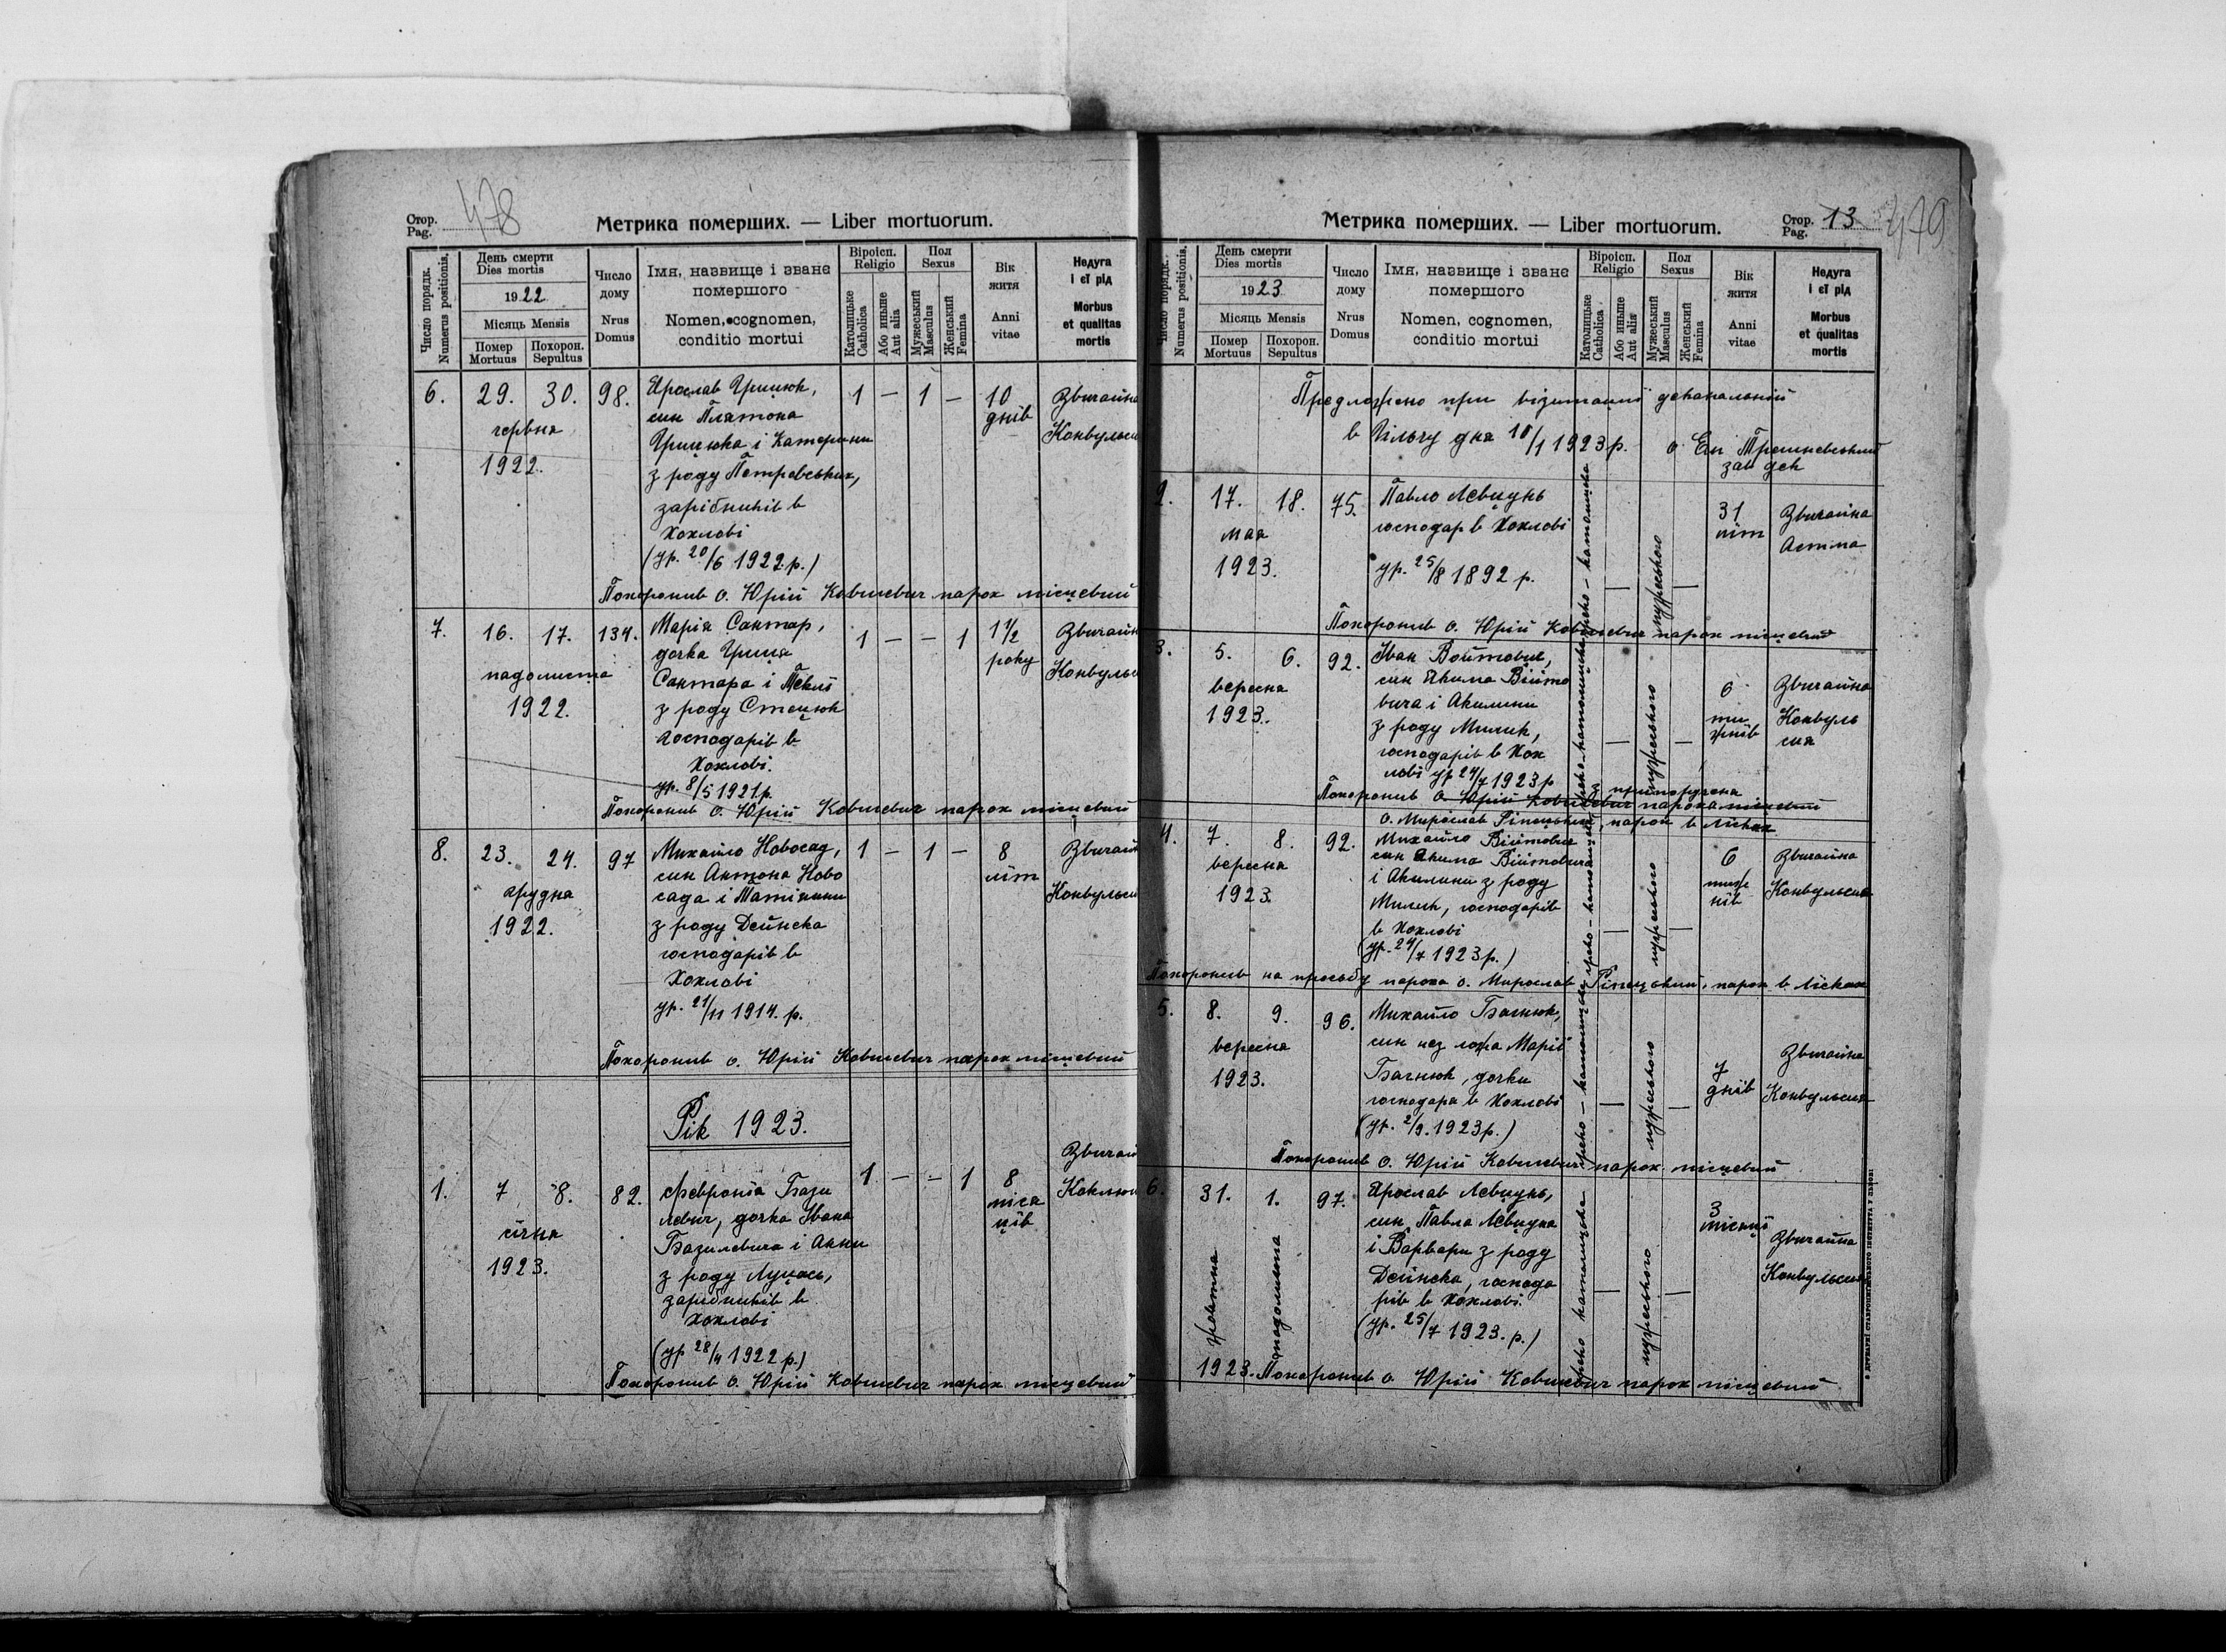 Стор.
Pag.
478
Метрика померших. — Liber mortuorum.
Число порядк.
Numerus positionis.
День смерти
Dies mortis
1922
Місяць Mensis
Помер
Mortuus
Похорон.
Sepultus
Число
дому
Nrus
Domus
Імя, назвище і зване
помершого
Nomen, cognomen,
conditio mortui
Віроісп.
Religio
Католицьке
Catholica
Або иньше
Aut alia
Пол
Sexus
Мужеський
Masculus
Женський
Femina
Вік
житя
Anni
vitae
Недуга
і єї рід
Morbus
et qualitas
mortis
6. 29. 30. 98. Ярослав Грицюк, 1 — 1 — 10 Звичайна
червня
1922.
син Плятона
днів
Конвульси
Грицюка і Катерини
з роду Петровських,
зарібників в
Хохлові
(ур. 20/6 1922.р.)
Похоронив о. Юрій Ковшевич парох місцевий
7. 16. 17. 134. Марія Сантар, 1 — — 1 1 1/2
падолиста
1922.
дочка Гриця
року
Конвульси
Сантара і Теклі
з роду Стецюк
господарів в
Хохлові.
ур. 8/5 1921р.
Похоронив о. Юрій Ковшевич парох місцевий
8. 23. 24. 97 Михайло Новосад, 1 — 1 — 8
грудня
1922.
син Антона Ново
літ
сада і Матіянни
Конвульси
з роду Дейнека
господарів в
Хохлові
ур. 21/11 1914. р.
Похоронив о. Юрій Ковшевич парох місцевий
Рік 1923.
1. 7 8. 82. Февронія Бази 1 — — 1 8
січня
1923.
левич, дочка Івана
міся
ців
Базилевича і Анни
з роду Луцась,
зарібників в
Хохлові
(ур 28/4 1922 р.)
Похоронив о. Юрій Ковшевич парох місцевий
Метрика померших. — Liber mortuorum.
Стор.
Pag.
13
479
Число порядк.
Numerus positionis.
День смерти
Dies mortis
1923
Місяць Mensis
Помер
Mortuus
Похорон.
Sepultus
Число
дому
Nrus
Domus
Імя, назвище і зване
помершого
Nomen, cognomen,
conditio mortui
Віроісп.
Religio
Католицьке
Catholica
Або иньше
Aut alia
Пол
Sexus
Мужеський
Masculus
Женський
Femina
Вік
житя
Anni
vitae
Недуга
і єї рід
Morbus
et qualitas
mortis
Предложено при візитації деканальній
в дня 1923р. о.
зав дек
2. 17. 18. 75. Павло Левцунь греко-католицка — мужеського — 31 Звичайна
мая
1923.
господар в Хохлові
літ
Астма
ур. 25/8 1892 р.
Похоронив о. Юрій Ковшевич парох місцевий
3. 5. 6. 92. Іван Войтович, греко-католицка — мужеського — 6 Звичайна
вересня
1923.
син Якима Війто
вича і Акилини
ти
жнів
Конвуль
сия
з роду Милик,
господарів в Хох
лові ур 24/7 1923 р
Похоронив о. Юрій Ковшевич пароха місцевий
о. Мирослав Ріпецький, парох в Лісках
4. 7. 8. 92. Михайло Війтович греко-католицка — мужеського — 6 Звичайна
вересня
1923.
син Якима Війтовича
тиж
нів
Конвульсия
і Акилини з роду
Милик, господарів
в Хохлові
(ур. 24/7 1923 р.)
Похоронив на просьбу пароха о. Мирослав Ріпецький, парох в Лісках
5. 8. 9. 96. Михайло Багнюк, греко-католицка — мужеського — 7 Звичайна
вересня
1923.
син нез ложа Марії
днів
Конвульсия
Багнюк, дочки
господара в Хохлові
(ур. 2/9. 1923р.)
Похоронив о. Юрій Ковшевич парох місцевий
6. 31. 1. 97. Ярослав Левцунь, греко католицка — мужеського — 3 Звичайна
жовтня
падолиста
1923.
син Павла Левцуна
місяці
Конвульсия
і Варвари з роду
Дейнека, господа
рів в Хохлові.
(ур. 25/7 1923. р.)
Похоронив о Юрій Ковшевич парох місцевий